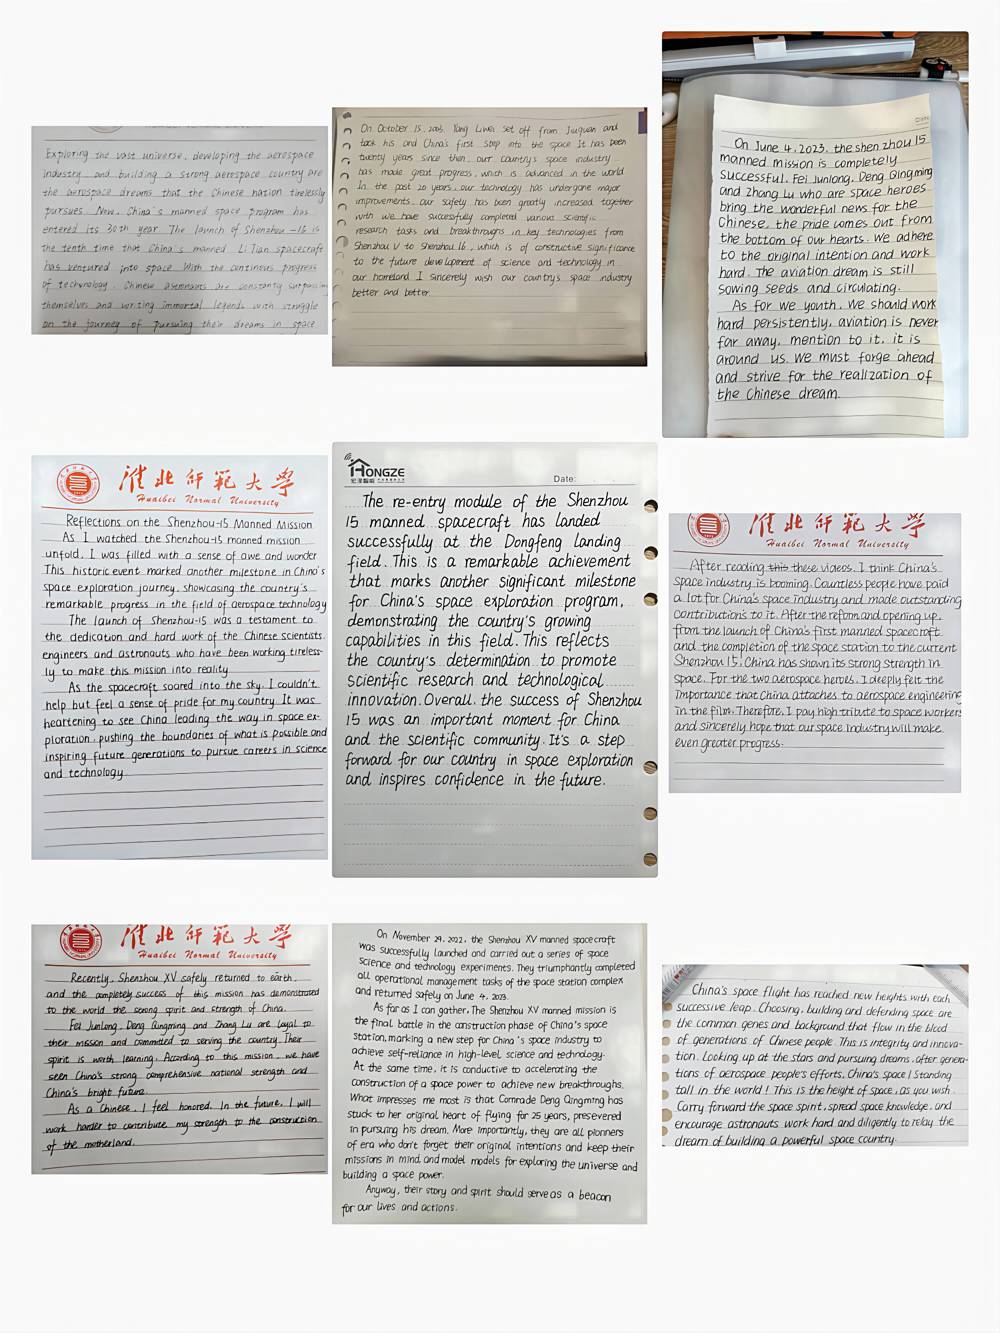 Exploring the vast universe, developing the aerospace
industry and building a strong aerospace country are
the aerospace dreams that the Chinese nation tirelessly
pursues. Now, China's manned space program has
entered its 30th year. The launch of Shenzhou-16 is
the tenth time that China's manned LiTian spacecraft
has ventured into space. With the continous progress
of technology, Chinese are constantly surpassing
themselves and writing immortal legends with struggle
on the journey of pursuing their dreams in space
On October 15, 2003, Yang Liwei set off from Jiuquan and
took his and China's first step into the space It has been
twenty years since then, our country's space industry
has made great progress, which is advanced in the world
In the past 20 years, our technology has undergone major
improvements, our safety has been greatly increased together
with we have successfully completed various scientific
research tasks and breakthroughs in key technologies from
Shenzhou V to Shenzhou 16, which is of constructive significance
to the future development of science and technology in
our homeland I sincerely wish our country's space industry
better and better.
Date
On June 4, 2023, the shen zhou 15
manned mission is completely
successful. Fei Junlong, Deng Qingming
and Zhang Lu who are space heroes
bring the wonderful news for the
Chinese, the pride comes out from
the bottom of our hearts. We adhere
to the original intention and work
hard. The aviation dream is still
sowing seeds and circulating.
As for we youth, we should work
hard persistently, aviation is never
far away, mention to it, it is
around us. We must forge ahead
and strive for the realization of
the Chinese dream.
淮北师范大学
Huaibei Normal University
Reflections on the Shenzhou-15 Manned Mission
As I watched the Shenzhou-15 manned mission
unfold, I was filled with a sense of awe and wonder
This historic event marked another milestone in China's
space exploration journey, showcasing the country's
remarkable progress in the field of aerospace technology
The launch of Shenzhou-15 was a testament to
the dedication and hard work of the Chinese scientists,
engineers and astronauts who have been working tireless-
ly to make this mission into reality
As the spacecraft soared into the sky, I couldn't
help but feel a sense of pride for my country. It was
heartening to see China leading the way in space ex-
ploration, pushing the boundaries of what is possible and
inspiring future generations to pursue careers in science
and technology
HONGZE
Date:
The re-entry module of the Shenzhou
15 manned spacecraft has landed
successfully at the Dongfeng landing
field. This is a remarkable achievement
that marks another significant milestone
for China's space exploration program,
demonstrating the country's growing
capabilities in this field. This reflects
the country's determination to promote
scientific research and technological
innovation. Overall, the success of Shenzhou
15 was an important moment for China
and the scientific community. It's a step
forward for our country in space exploration
and inspires confidence in the future.
淮北师范大学
Huaibei Normal University
After reading this these videos, I think China's
space industry is booming. Countless people have paid
a lot for China's space industry and made outstanding
contributions to it. After the reform and opening up,
from the launch of China's first manned spacecraft
and the completion of the space station to the current
Shenzhou 15, China has shown its strong strength in
space. For the two aerospace heroes, I deeply felt the
importance that China attaches to aerospace engineering
in the film. Therefore, I pay high tribute to space workers
and sincerely hope that our space industry will make
even greater progress.
淮北师范大学
Huaibei Normal University
Recently, Shenzhou XV safely returned to earth,
and the completely success of this mission has demonstrated
to the world the strong spirit and strength of China.
Fei Junlong, Deng Qingming and Zhang Lu are loyal to
their mission and committed to serving the country. Their
spirit is worth learning. According to this mission, we have
seen China's strong comprehensive national strength and
China's bright future.
As a Chinese, I feel honored. In the future, I will
work harder to contribute my strength to the construction
of the motherland.
On November 29, 2022, the Shenzhou XV manned spacecraft
was successfully launched and carried out a series of space
science and technology experiments. They triumphantly completed
all operational management tasks of the space station complex
and returned safely on June 4, 2023.
As far as I can gather, The Shenzhou XV manned mission is
the final battle in the construction phase of China's space
station, marking a new step for China's space industry to
achieve self-reliance in high-level science and technology.
At the same time, it is conducive to accelerating the
construction of a space power to achieve new breakthroughs.
What impresses me most is that Comrade Deng Qingming has
stuck to her original heart of flying for 25 years, presevered
in pursuing his dream. More importantly, they are all pionners
of era who don't forget their original intentions and keep their
missions in mind, and model models for exploring the universe and
building a space power.
Anyway, their story and spirit should serve as a beacon
for our lives and actions.
China's space flight has reached new heights with each
successive leap. Choosing, building and defending space are
the common genes and background that flow in the blood
of generations of Chinese people. This is integrity and innova-
tion. Looking up at the stars and pursuing dreams, after genera-
tions of aerospace people's efforts, China's space! Standing
tall in the world! This is the height of space, as you wish.
Carry forward the space spirit, spread space knowledge, and
encourage astronauts work hard and diligently to relay the
dream of building a powerful space country.